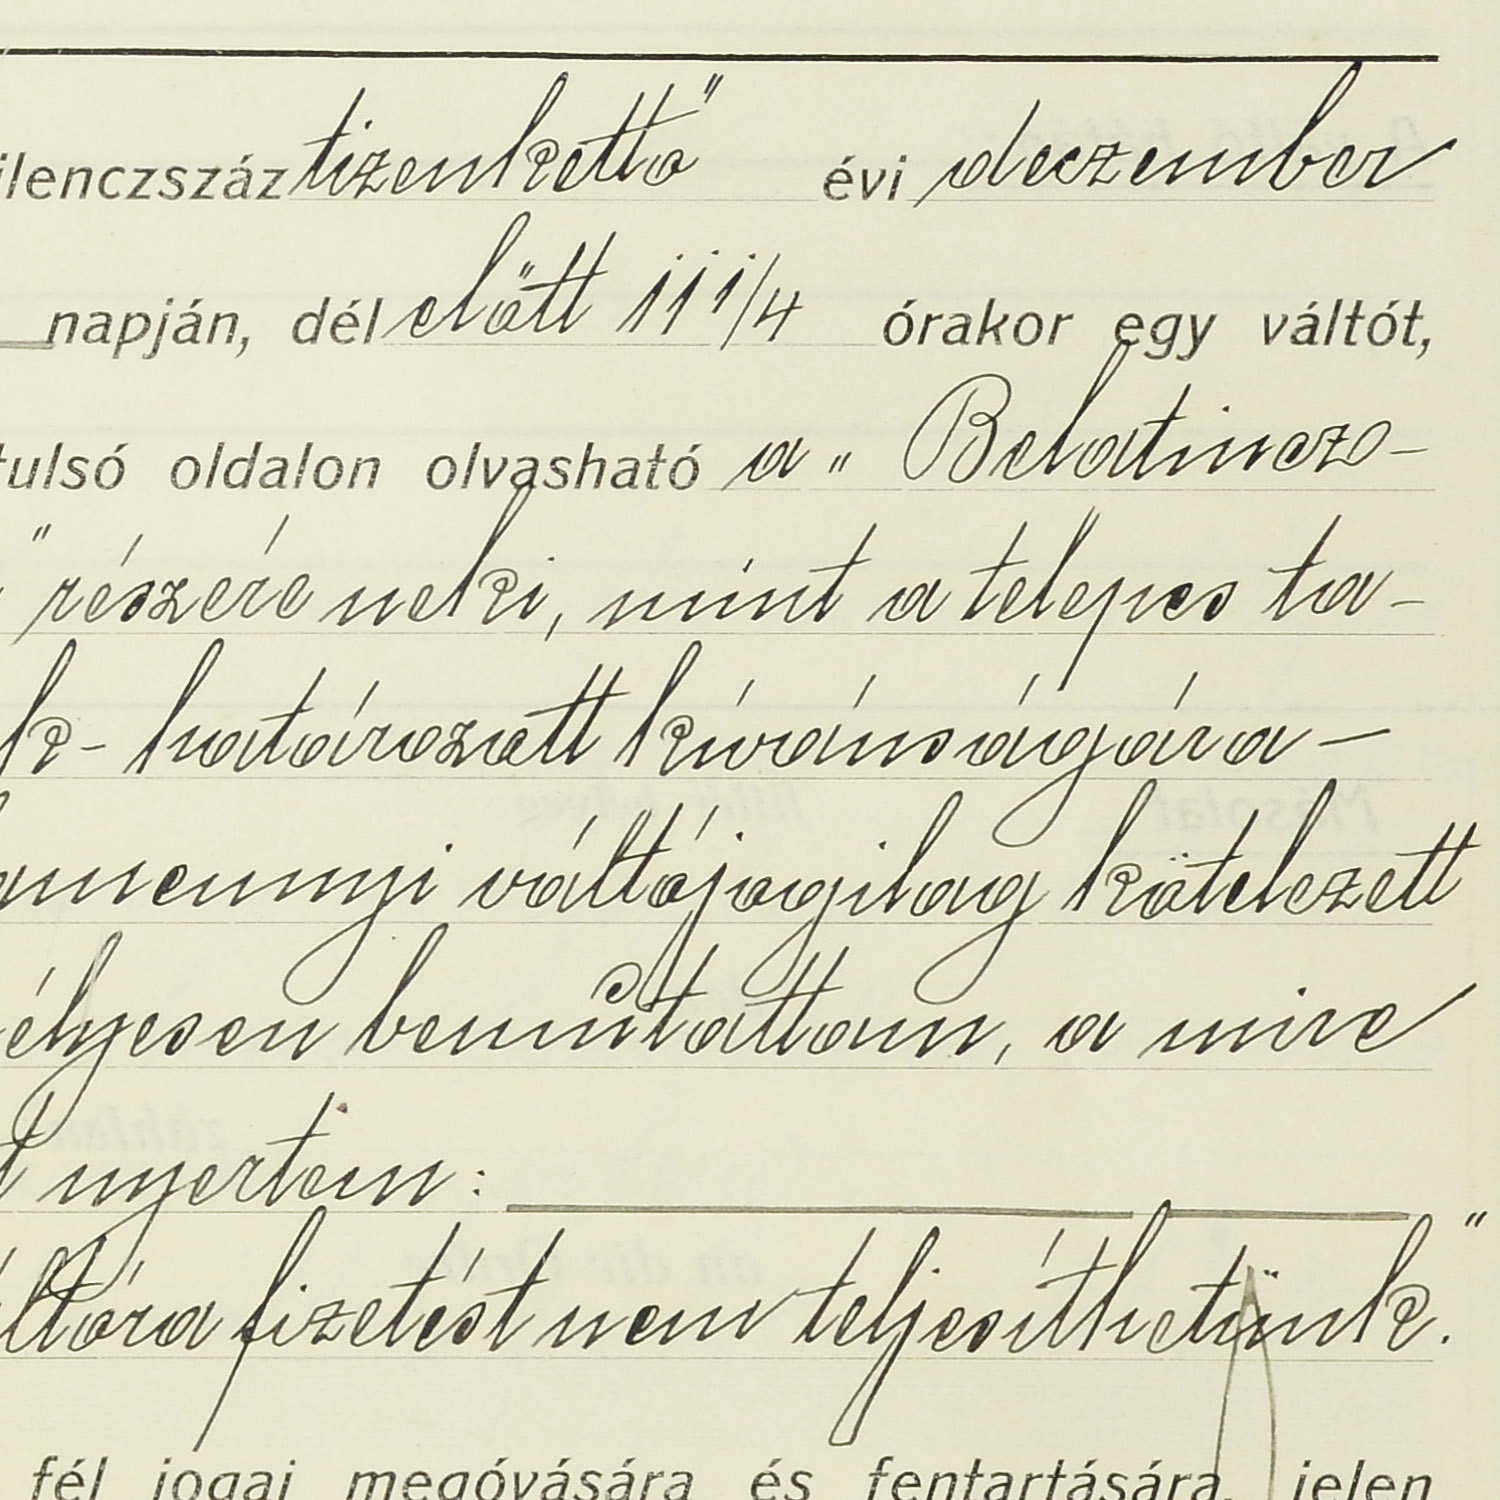 ilenczszáz tizenkettő évi deczember
napján, dél előtt 11 1/4 órakor egy váltót,
tulsó oldalon olvasható a „Belatincz-
" részére neki, mint a telepes ta-
k- határozott kívánságára-
amennyi váltójogilag kötelezett
élyesen bemutattam, a mire
t nyertem:
ltóra fizetést nem teljesíthetünk."
fél jogai megóvására és fentartására, jelen